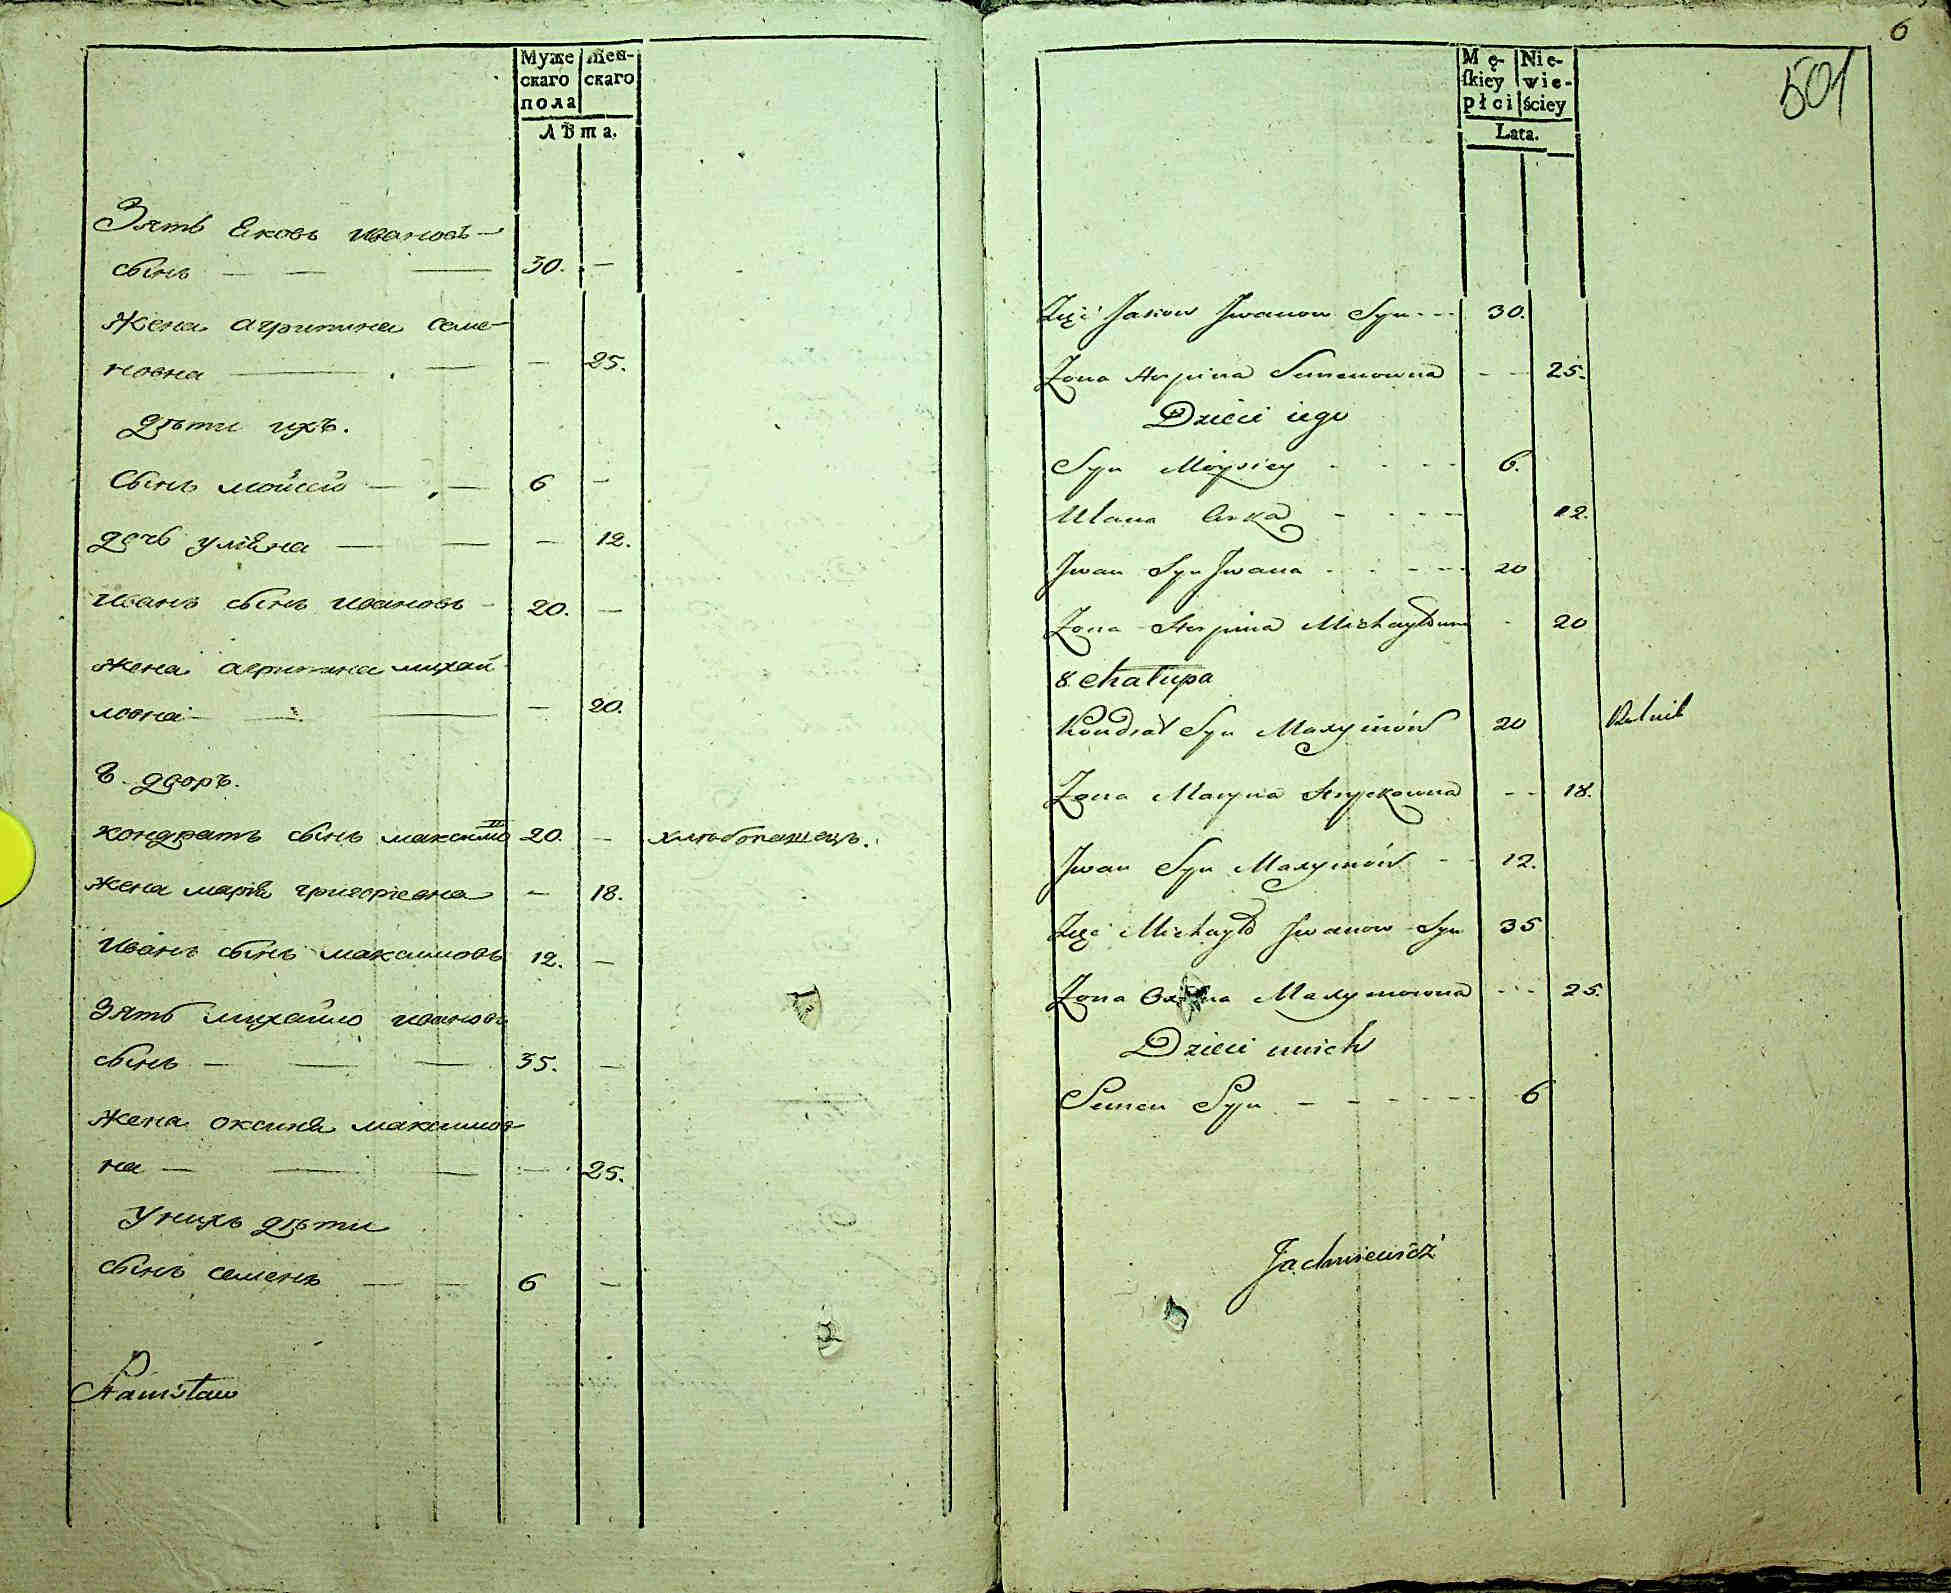 Муже
скаго
пола
Жен-
скаго
Лѣта.
Зять Яковъ ивановъ
сынъ — — — 30. —
Жена агрипина семе-
новна — — — 25.
дѣти ихъ.
Сынъ мойсей — — 6 —
дочь улияна — — — 12.
иванъ сынъ ивановъ - 20. —
жена агрипина михай
ловна — — — — 20.
8. дворъ.
кондратъ сынъ максимо 20. — хлѣбопашецъ.
жена мария григориевна — 18.
иванъ сынъ максимовъ 12. —
Зять михайло ивановъ
сынъ — — — 35. —
жена оксиния максимов
на — — — — 25.
У нихъ дѣти
сынъ семенъ — — 6 —
Stanisław
6
501
Mę-
skiey
płci
Nie-
wie-
ściey
Lata.
Zięć Jakow Jwanow Syn - - - 30.
Zona Semenowna - - 25.
Dzieci iego
Syn Moysiey - - - - 6.
Ulana - - - - 12.
Jwan Syn Jwana - - - - - 20
Zona Michayłowna - 20
8 chałupa
Kondrat Syn Maxymów 20 Rolnik
Zona Maryna - - 18.
Jwan Syn Maxymów - - 12.
Zięć Michayło Jwanow Syn 35
Zona Maxymowna - - - 25.
Dzieci unich
Semen Syn - - - - - - 6
Jachniewicz